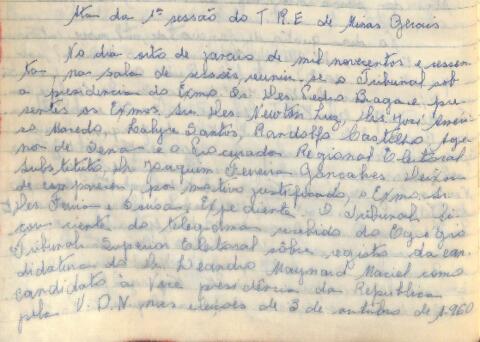 Ata da 1ª sessão do T.R.E de Minas Gerais
No dia oito de janeiro de mil novecentos e sessen
ta, na sala de sessões, reuniu-se o Tribunal sob
a presidência do Exmo. Sr. Des. Pedro Braga e pre
sentes os Exmos. Srs. Des. Newton Luz, Drs. José
so Macedo, Santos, Randolfo Castilho, Age
nor de Sena e o Procurador Regional Eleitoral
Substituto, Dr. Joaquim Ferreira Gonçalves. Deixou
de comparecer, por motivo justificado, o Exmo. Sr.
Des. Faria e Sousa. Expediente. O Tribunal fi
cou ciente do telegrama recebido do Egregio
Tribunal Superior Eleitoral sôbre registo da can
didatura do Dr. Leandro Maynard Maciel como
candidato à Vice presidência da República
pela U.D.N nas eleições de 3 de outubro de 1.960